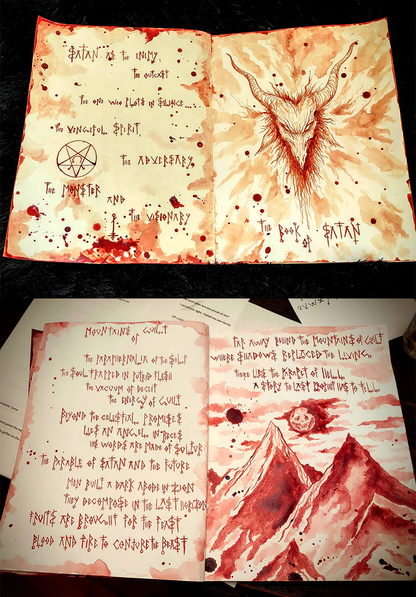 SATAN AS THE ENEMY,
THE OUTCAST
THE ONE WHO PLOTS IN SILENCE...
THE VENGEFUL SPIRIT,
THE ADVERSARY,
THE MONSTER
AND
THE VISIONARY
THE BOOK
OF SATAN
MOUNTAINS OF GUILT
THE PARAPHERNALIA OF THE SELF
THE SOUL TRAPPED IN PUTRID FLESH
THE VACUUM OF DECEIT
THE ENERGY OF GUILT
BEYOND THE CELESTIAL PROMISES
LIES AN ANGEL IN PIECES
HIS WORDS ARE MADE OF SULFUR
THE PARABLE OF SATAN AND THE FUTURE
MEN BUILT A DARK ABODE IN ZION
THEY DECOMPOSE IN THE LAST HORIZON
FRUITS ARE BROUGHT FOR THE FEAST
BLOOD AND FIRE TO CONJURE THE BEAST
FAR AWAY BEHIND THE MOUNTAINS OF GUILT
WHERE SHADOWS REPLACED THE LIVING,
THERE LIES THE PARAPET OF HELL,
A STORY TO LAST LONGER THAN TO TELL..